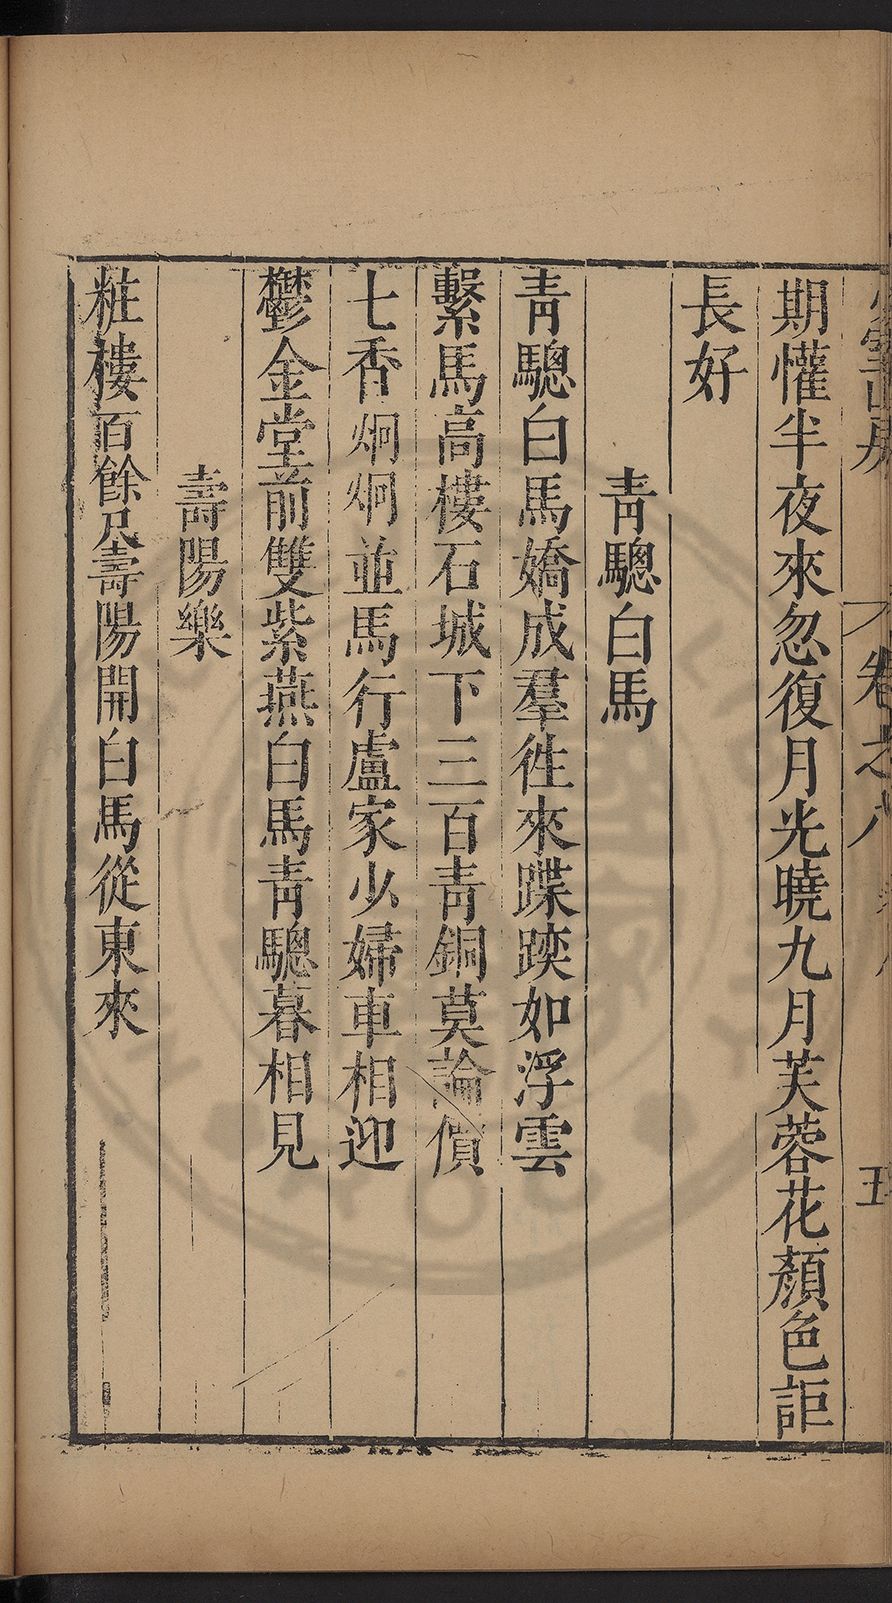 少室山房 卷之八 五
期懽半夜來忽復月光曉九月芙蓉花顏色詎
長好
青驄白馬
青驄白馬嬌成羣徃來蹀𨇾如浮雲
繫馬高樓石城下三百青銅莫論價
七香炯炯並馬行盧家少婦車相迎
鬱金堂前雙紫燕白馬青驄暮相見
壽陽樂
粧樓百餘尺壽陽開白馬從東來